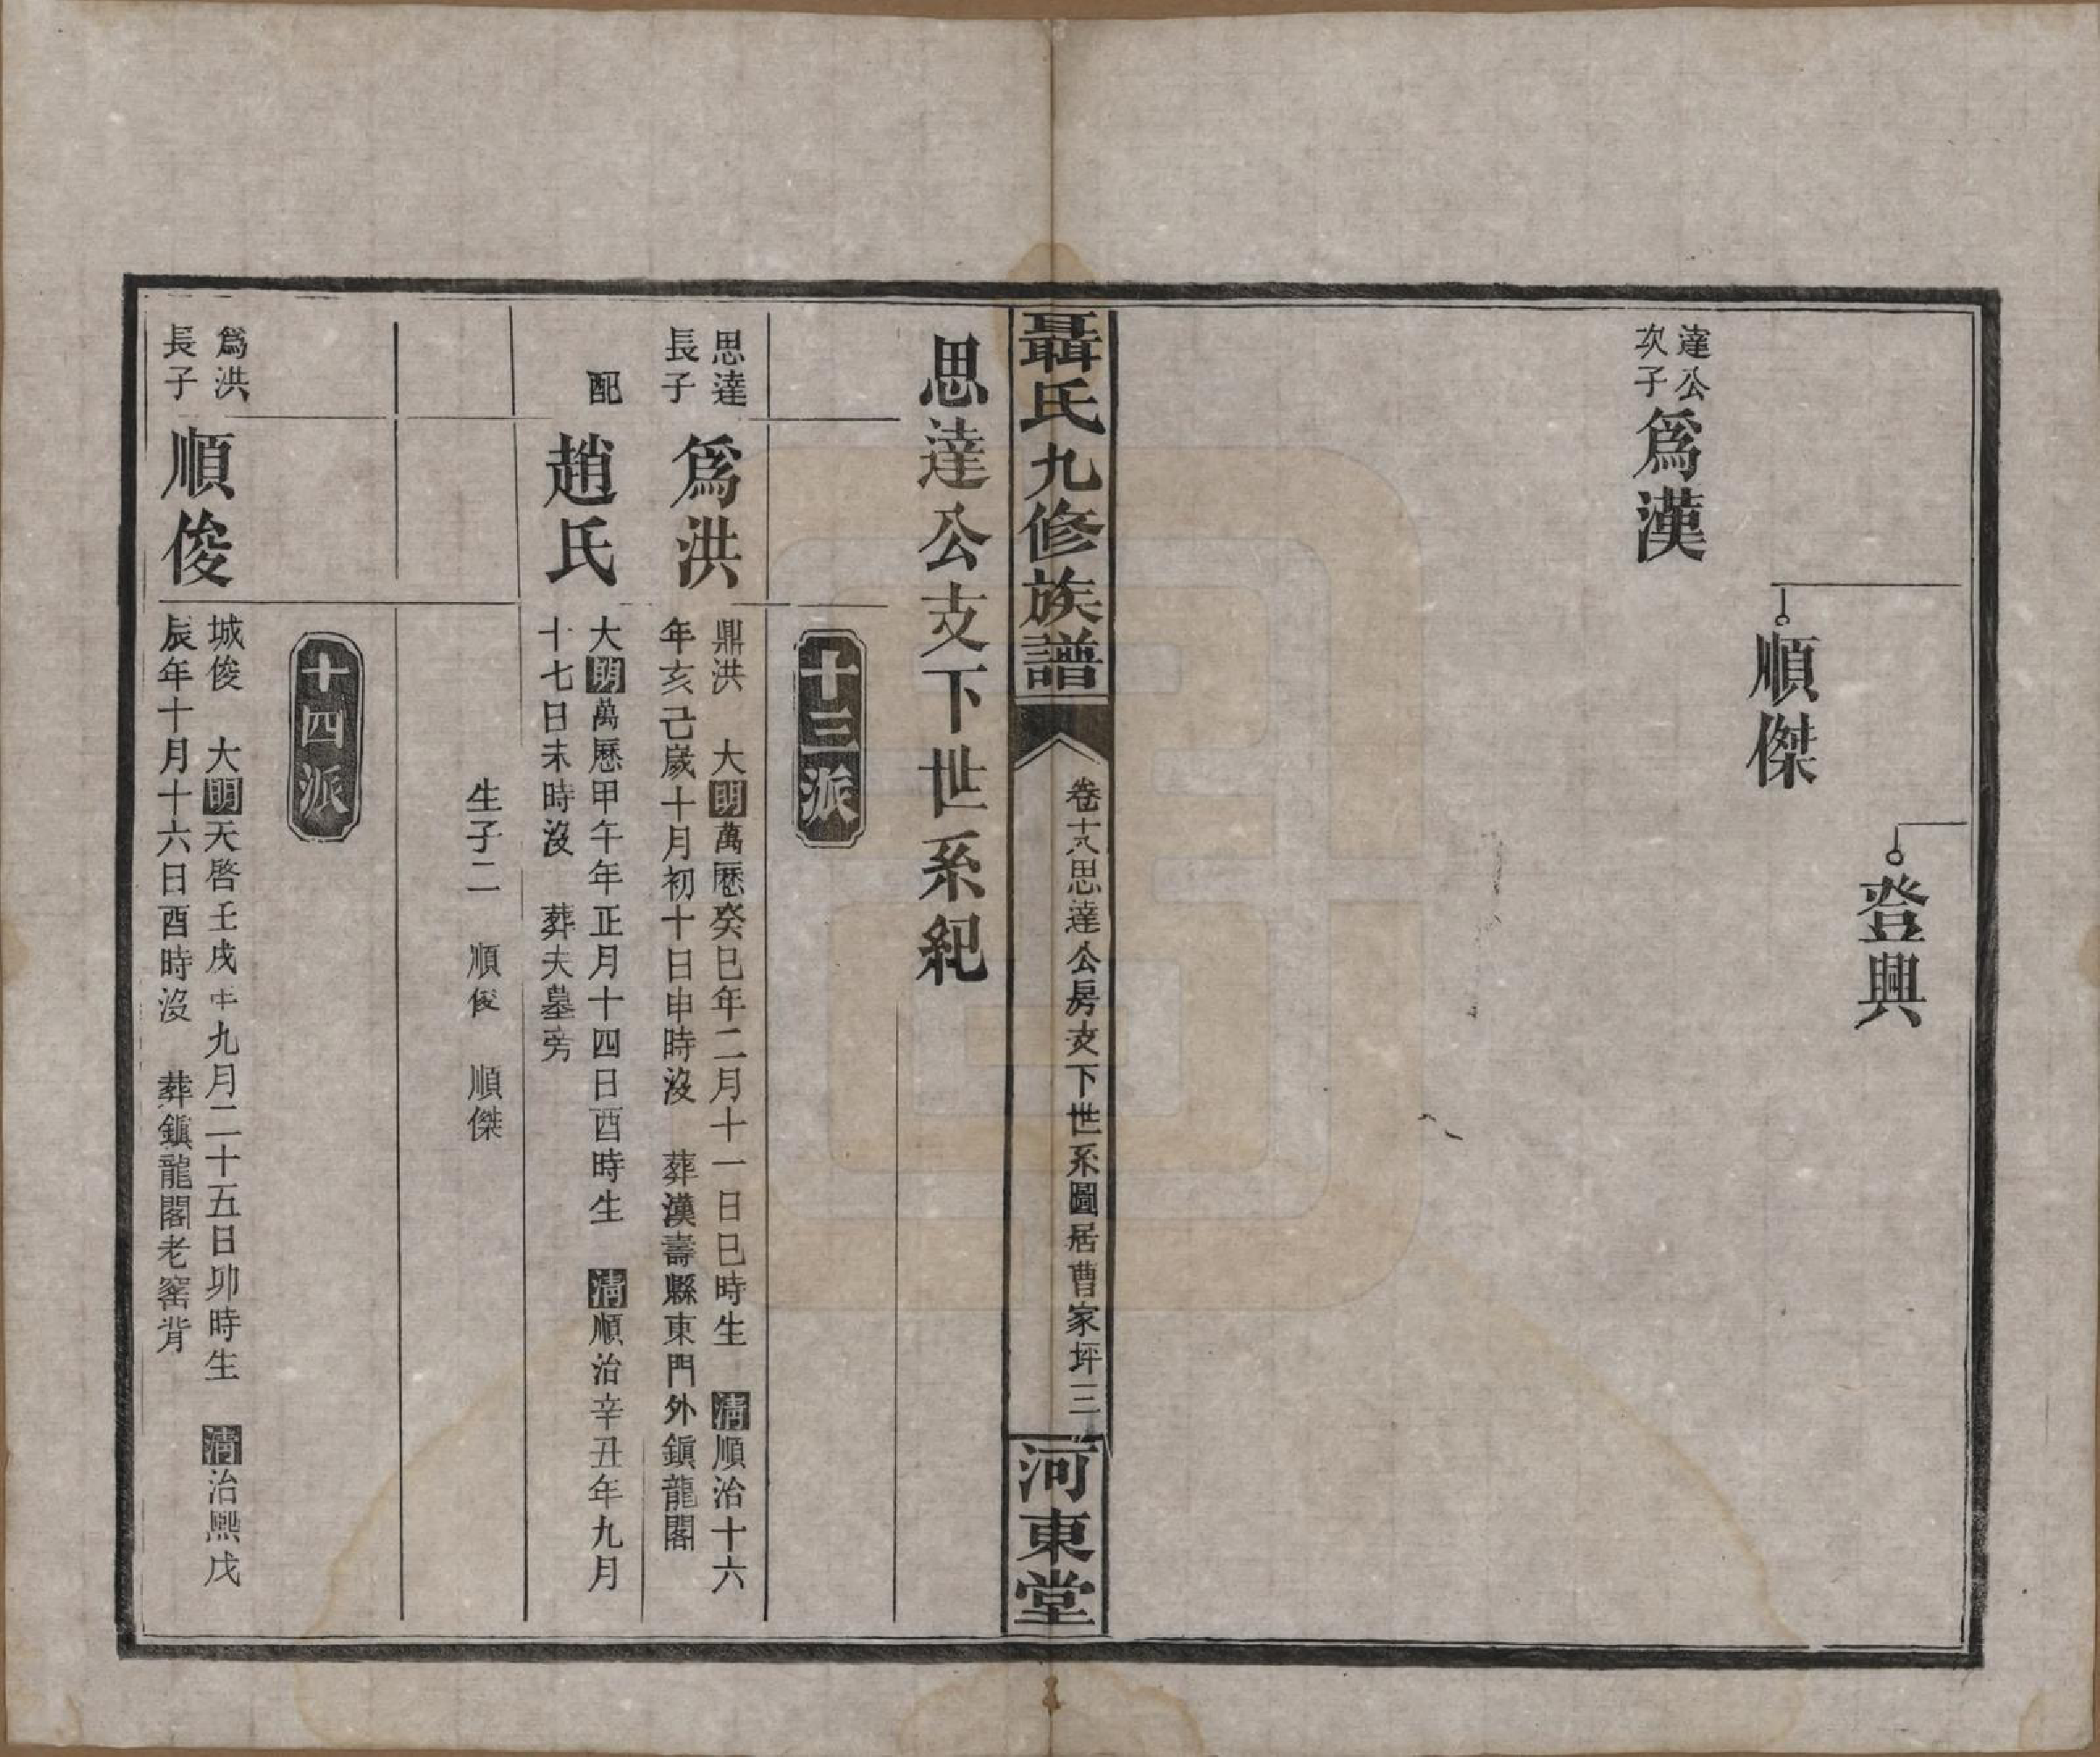 登興
順傑
達公
次子
爲漢
聶氏九修族譜
卷十八思達公房支下世系圖居曹家坪 三
河東堂
思達公支下世系紀
十三派
思達
長子
爲洪
鼎洪 大明萬歷癸巳年二月十一日巳時生 清順治十六
年亥己歲十月初十日申時沒 葬漢壽縣東門外鎮龍閣
配
趙氏
大明萬歷甲午年正月十四日酉時生 清順治辛丑年九月
十七日未時沒 葬夫墓旁
生子二 順俊 順傑
十四派
爲洪
長子
順俊
城俊 大明天啓壬戌年九月二十五日卯時生 清治熙戊
辰年十月十六日酉時沒 葬鎮龍閣老窰背